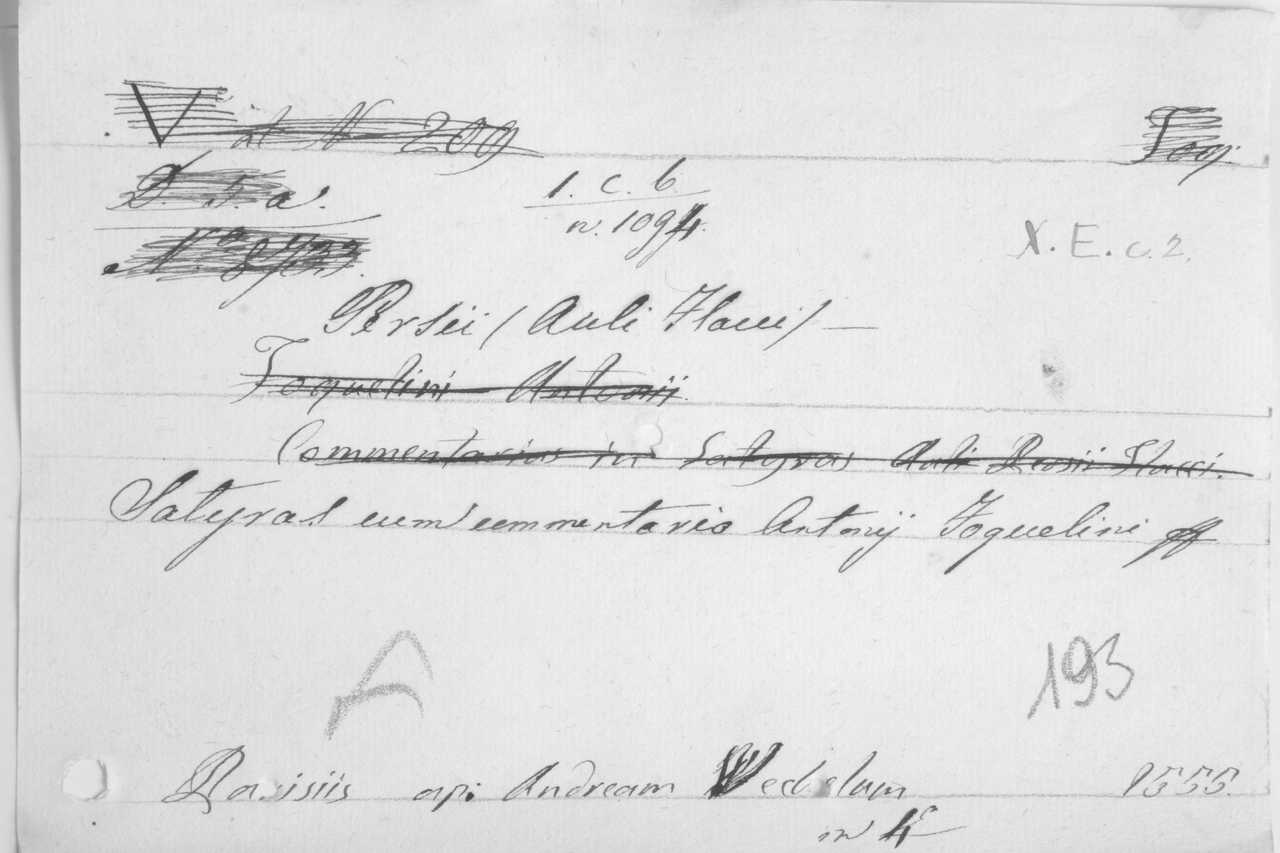 V at N 209 Foq.
D. 5. a.
1. c. b
n. 1094.
X. E. c. 2.
Persii (Auli Flacci) —
Foquelini Antonii
Commentarius in Satyras Auli Persii Flacci.
Satyras cum commentario Antonij Foquelini
193
Parisiis ap: Andream Wechelum 1555.
in 4°